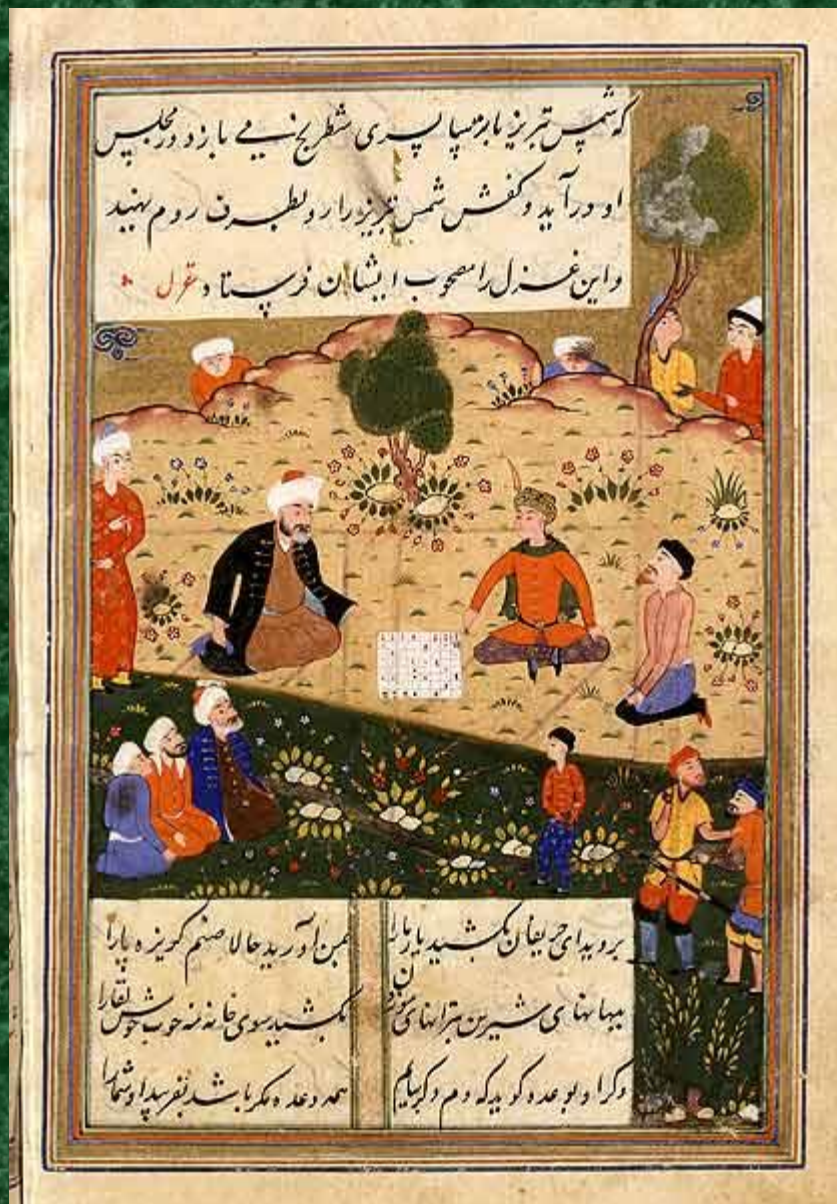 که شمس تبریز با ترسا پسری شطرنج نیمی بازد در مجلس
او درآید و کفش شمس تبریز را رو بطرف روم بنهید
و این غزل را مصحوب ایشان فرستاد غزل
بروید ای حریفان بکشید یار ما را
بمن آورید حالا صنم گریز پا را
ببهانهای شیرین بترانهای موزون
بکشید سوی خانه مه خوب خوش لقا را
وگر او بوعده گوید که دم دگر بیایم
همه وعده مکر باشد بفریبد او شما را